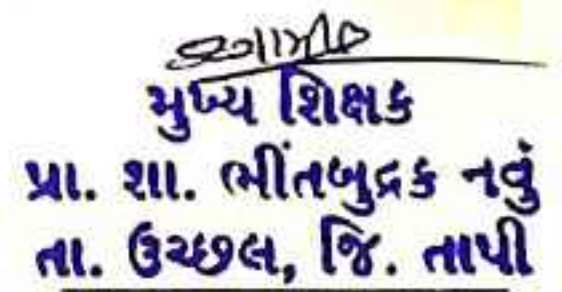 મુખ્ય શિક્ષક
પ્રા. શા. ભીંતબુદ્રક નવું
તા. ઉચ્છલ, જિ. તાપી